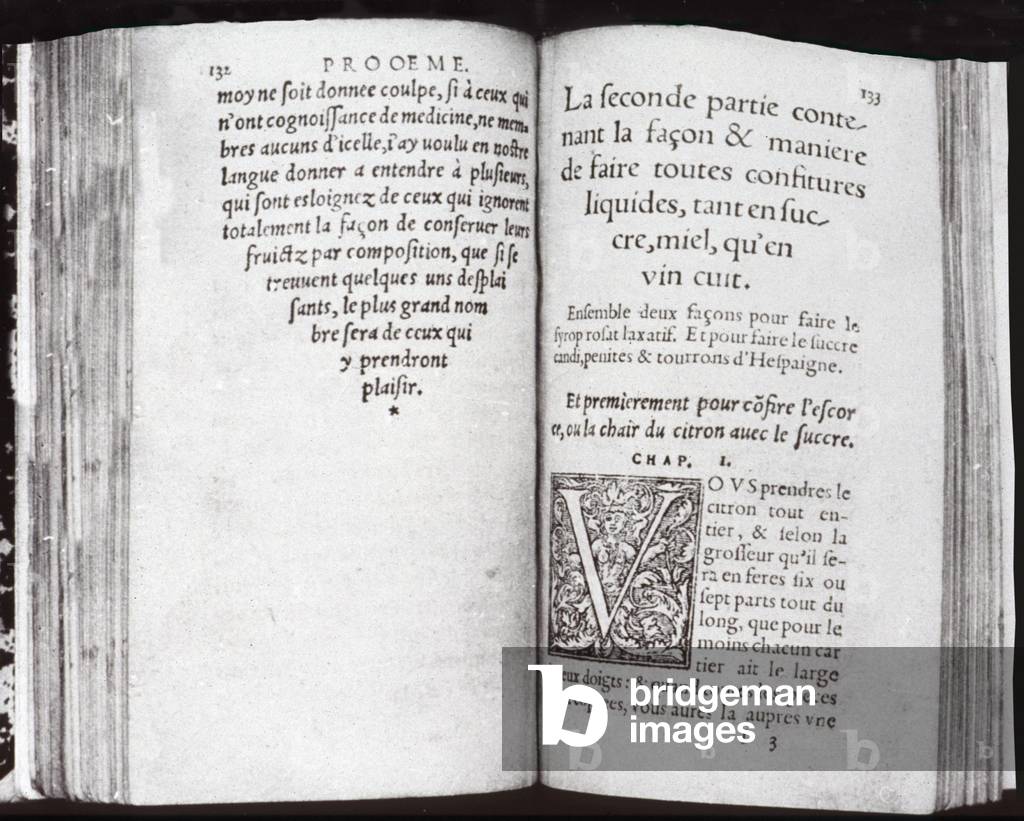 132 PROOEME.
moy ne ſoit donnee coulpe, ſi à ceux qui
n'ont cognoiſſance de medicine, ne mem-
bres aucuns d'icelle, i'ay uoulu en noſtre
langue donner a entendre à pluſieurs,
qui ſont esloignez de ceux qui ignorent
totalement la façon de conſeruer leurs
fruictz par compoſition, que ſi ſe
treuuent quelques uns deſplai
ſants, le plus grand nom
bre ſera de ceux qui
y prendront
plaiſir.
*
133
La ſeconde partie conte-
nant la façon & maniere
de faire toutes confitures
liquides, tant en ſuc-
cre, miel, qu'en
vin cuit.
Enſemble deux façons pour faire le
ſyrop roſat laxatif. Et pour faire le ſuccre
candi, penites & tourrons d'Heſpaigne.
Et premierement pour cõfire l'eſcor
ce, ou la chair du citron auec le ſuccre.
CHAP. I.
VOVS prendres le
citron tout en-
tier, & ſelon la
groſſeur qu'il ſe-
ra en feres ſix ou
ſept parts tout du
long, que pour le
moins chacun car
tier ait le large
doigts: &
vous aures la aupres vne
3
b bridgeman
images